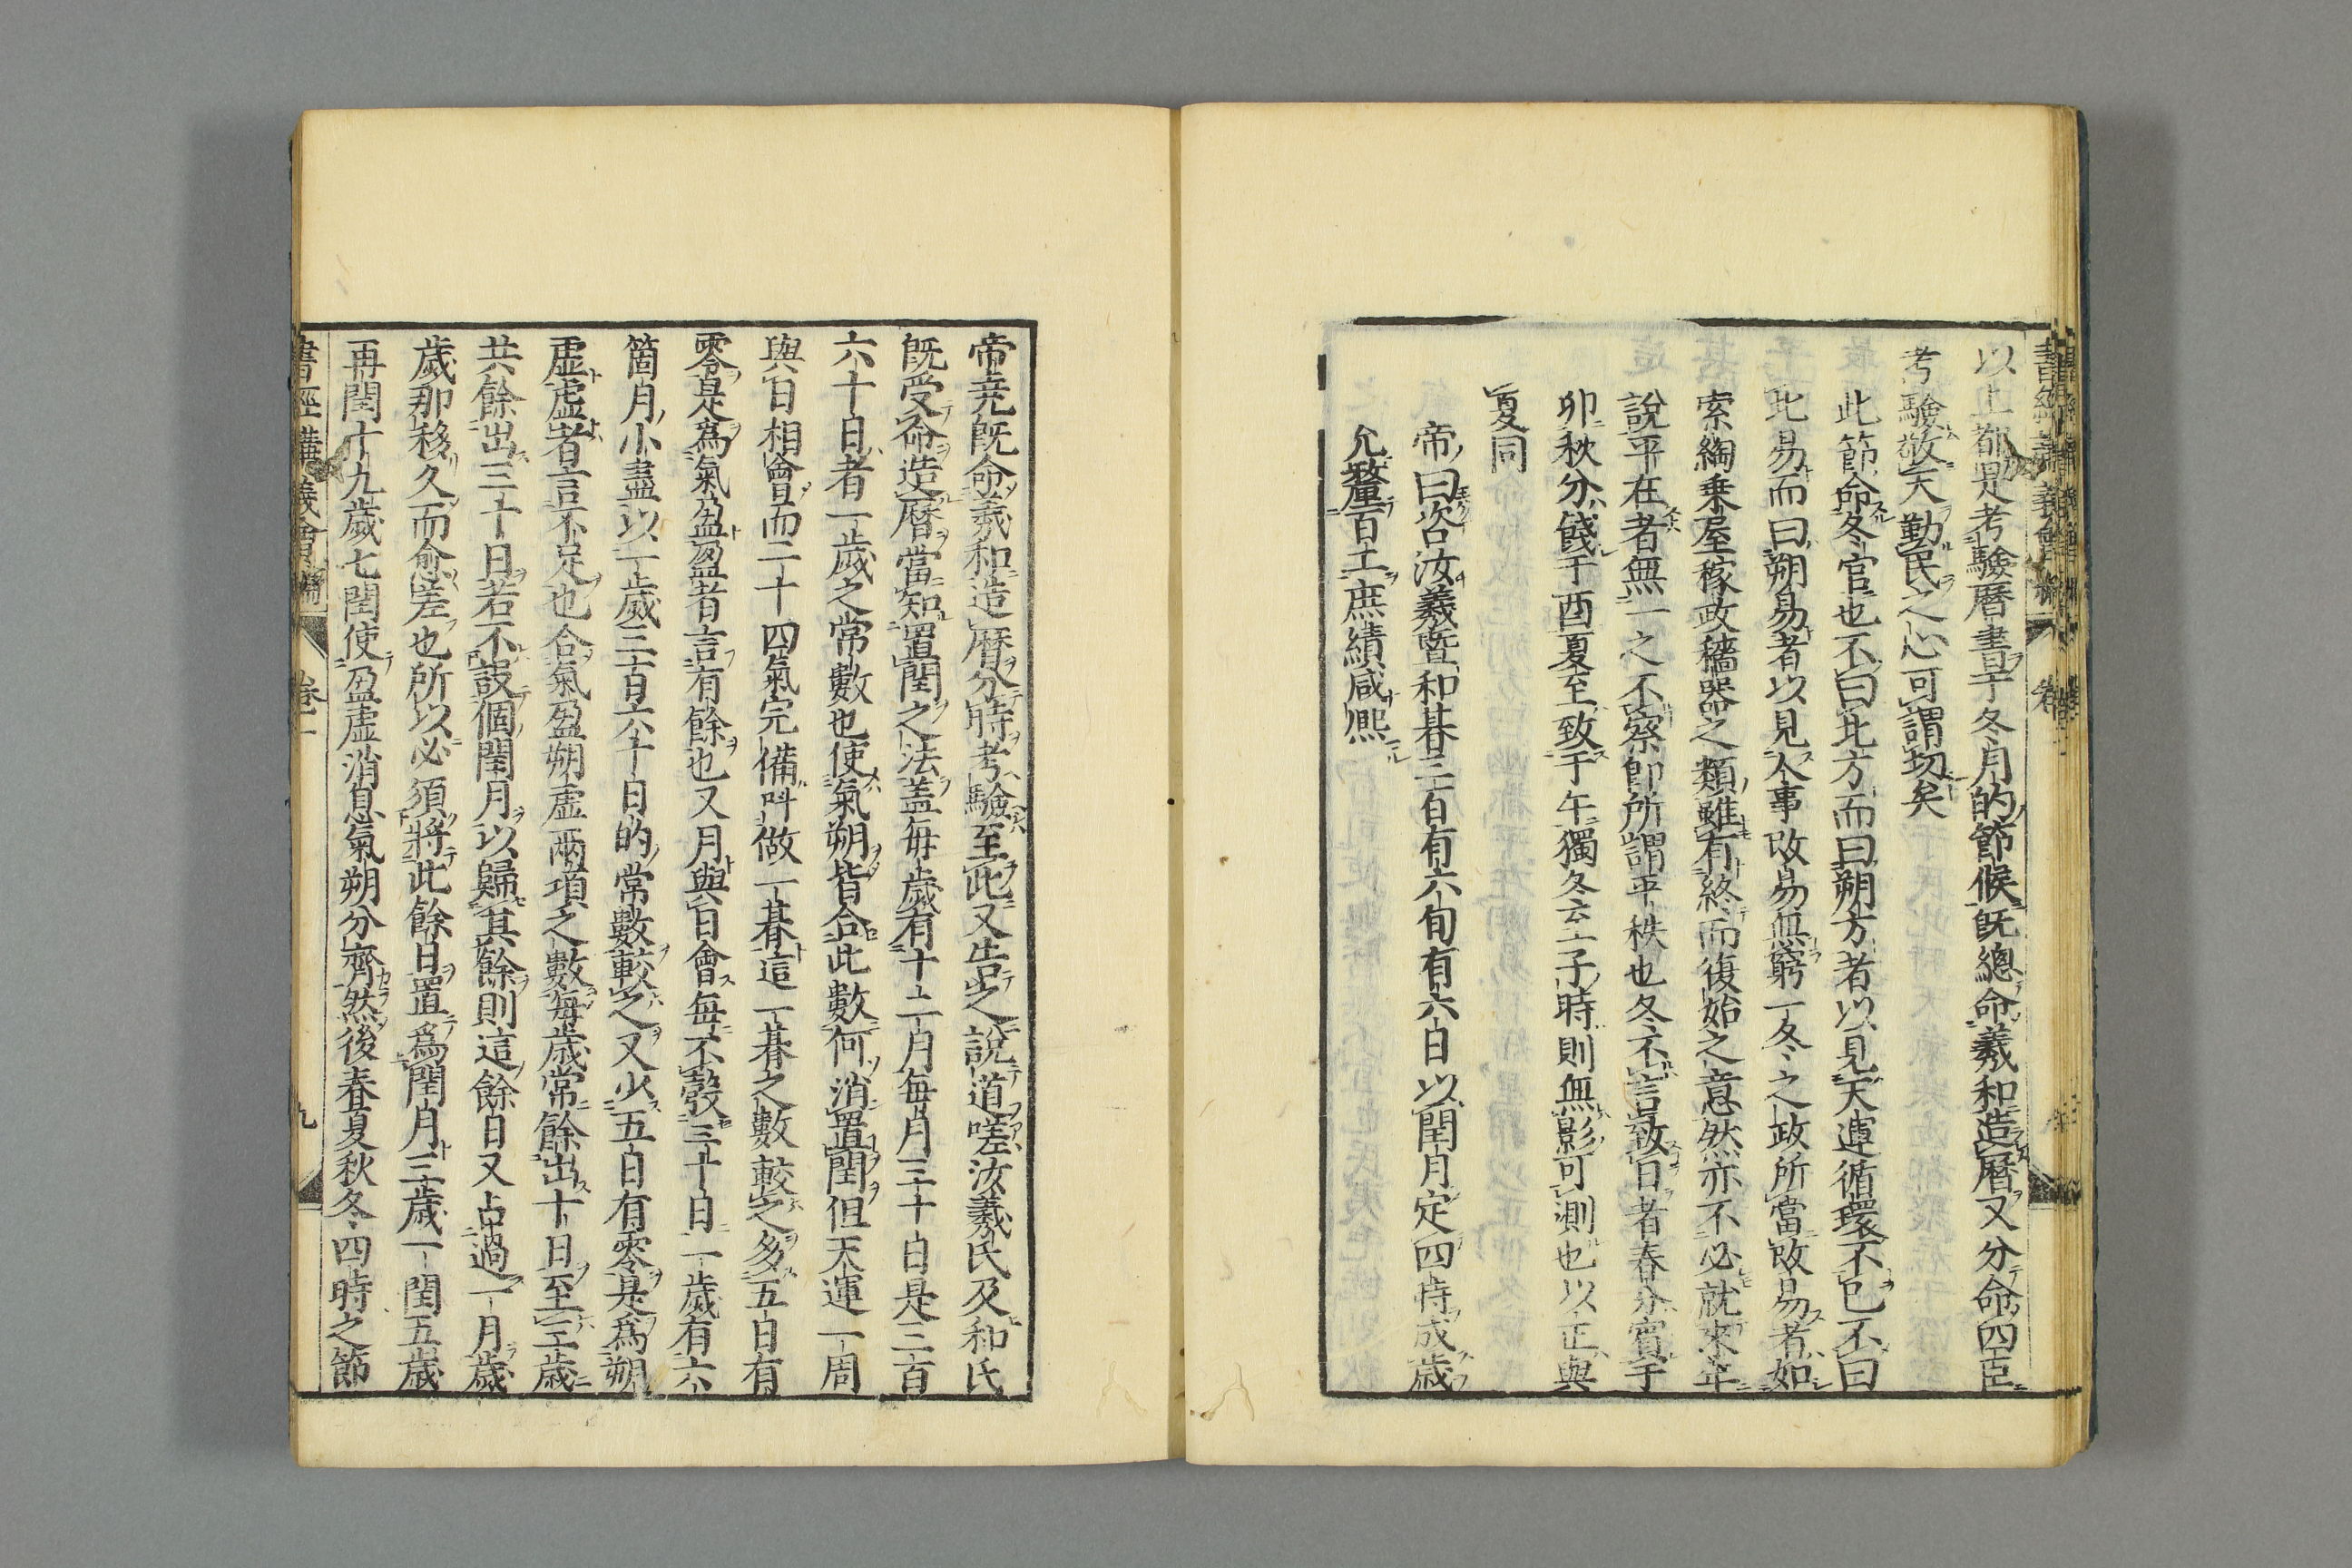 以上都是考驗曆書于冬月的節候既總命羲和造曆又分命四臣
考驗敬天勤民之心可謂切矣
此節命冬官也不曰北方而曰朔方者以見天運循環不已不曰
北易而曰朔易者以見人事改易無窮一冬之政所當改易者如
索綯乗屋稼政穡器之類雖有終而復始之意然亦不必就來年
說平在者無一之不察卽所謂平秩也冬不言致日者春分賓于
卯秋分餞于酉夏至致于午獨冬云子時則無影可測也以正與
夏同
帝曰咨汝羲暨和朞三百有六旬有六日以閏月定四時成歲
允釐百工庶績咸熈
帝尭既命羲和造曆分時考驗至此又告之說道嗟汝羲氏及和氏
既受命造曆當知置閏之法盖毎歲有十二月毎月三十日是三百
六十日者一歲之常數也使氣朔皆合此數何消置閏但天運一周
與日相會而二十四氣完備呌做一朞這一朞之數較之多五日有
零是爲氣盈盈者言有餘也又月與日會毎不彀三十日一歲有六
箇月小盡以一歲三百六十日的常數較之又少五日有零是爲朔
虛虛者言不足也合氣盈朔虛兩項之數毎歲常餘出十日至三歲
共餘出三十日若不設個閏月以歸其餘則這餘日又占過一月歲
歲那移久而愈差也所以必須將此餘日置爲閏月三歲一閏五歲
再閏十九歲七閏使盈虛消息氣朔分齊然後春夏秋冬四時之節
書經講義會編 卷一 九